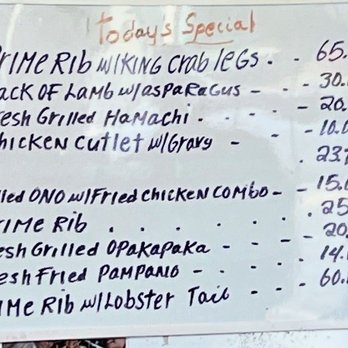 Today's Special
RIME Rib w/KING Crab legs . . 65.
ACK OF Lamb w/aspaRaGus - - 30.
esh Grilled HaMachi . - - - - 20.
hicken Cutlet w/Gravy - - 10.0
. 23.
lled ONO w/Fried chicken COMBO - - 15.0
RIME Rib . . . . . . . 25
esh GRilled OPakaPaka - - - 20.
esh Fried PaMPANO - - - - 14.
IMe Rib w/Lobster Tail - - - 60.